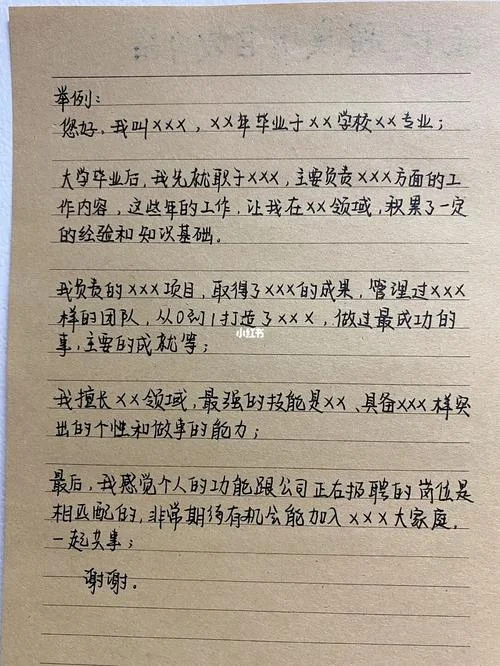 举例:
您好,我叫×××,××年毕业于××学校××专业;
大学毕业后,我先就职于×××,主要负责×××方面的工
作内容,这些年的工作,让我在××领域,积累了一定
的经验和知识基础。
我负责的×××项目,取得了×××的成果,管理过×××
样的团队,从0到1打造了×××,做过最成功的
事,主要的成就等;
小红书
我擅长××领域,最强的技能是××、具备×××样突
出的个性和做事的能力;
最后,我感觉个人的功能跟公司正在招聘的岗位是
相匹配的,非常期待有机会能加入×××大家庭,
一起共事;
谢谢.